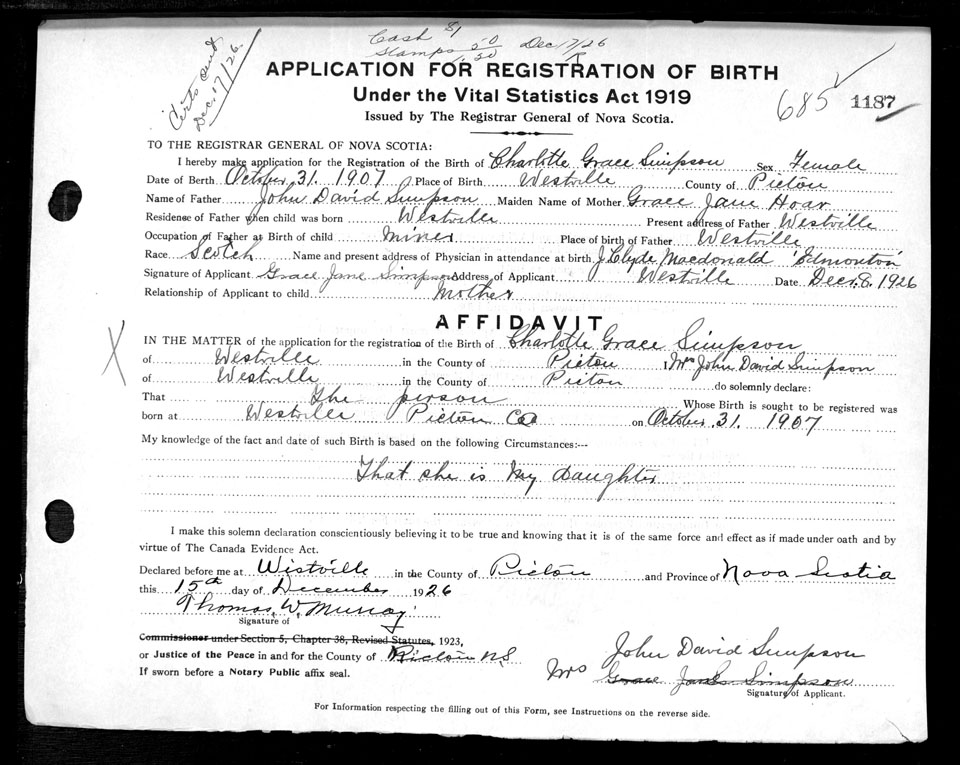 Cash $1
Stamps .50 Dec 7/26
1.50
Certs sent
Dec. 17/26.
APPLICATION FOR REGISTRATION OF BIRTH
Under the Vital Statistics Act 1919
Issued by The Registrar General of Nova Scotia.
685 1187
TO THE REGISTRAR GENERAL OF NOVA SCOTIA:
I hereby make application for the Registration of the Birth of Charlotte Grace Simpson Sex Female
Date of Berth October 31. 1907 Place of Birth Westville County of Pictou
Name of Father John David Simpson Maiden Name of Mother Grace Jane Hoar
Residense of Father when child was born Westville Present address of Father Westville
Occupation of Father at Birth of child miner Place of birth of Father Westville
Race Scotch Name and present address of Physician in attendance at birth J Clyde Macdonald 'Edmonton'
Signature of Applicant Grace Jane Simpson Address of Applicant Westville Date Dec. 8. 1926
Relationship of Applicant to child Mother
AFFIDAVIT
X
IN THE MATTER of the application for the registration of the Birth of Charlotte Grace Simpson
of Westville in the County of Pictou , Mrs John David Simpson
of Westville in the County of Pictou do solemnly declare:
That the person Whose Birth is sought to be registered was
born at Westville Pictou Co on October 31. 1907
My knowledge of the fact and date of such Birth is based on the following Circumstances:--
That she is my daughter
I make this solemn declaration conscientiously believing it to be true and knowing that it is of the same force and effect as if made under oath and by
virtue of The Canada Evidence Act.
Declared before me at Westville in the County of Pictou and Province of Nova Scotia
this 15th day of December 1926
Thomas W. Murray
Signature of
Commissioner under Section 5, Chapter 38, Revised Statutes, 1923,
or Justice of the Peace in and for the County of Pictou N.S
If sworn before a Notary Public affix seal.
John David Simpson
Mrs Grace Jane Simpson
Signature of Applicant.
For Information respecting the filling out of this Form, see Instructions on the reverse side.